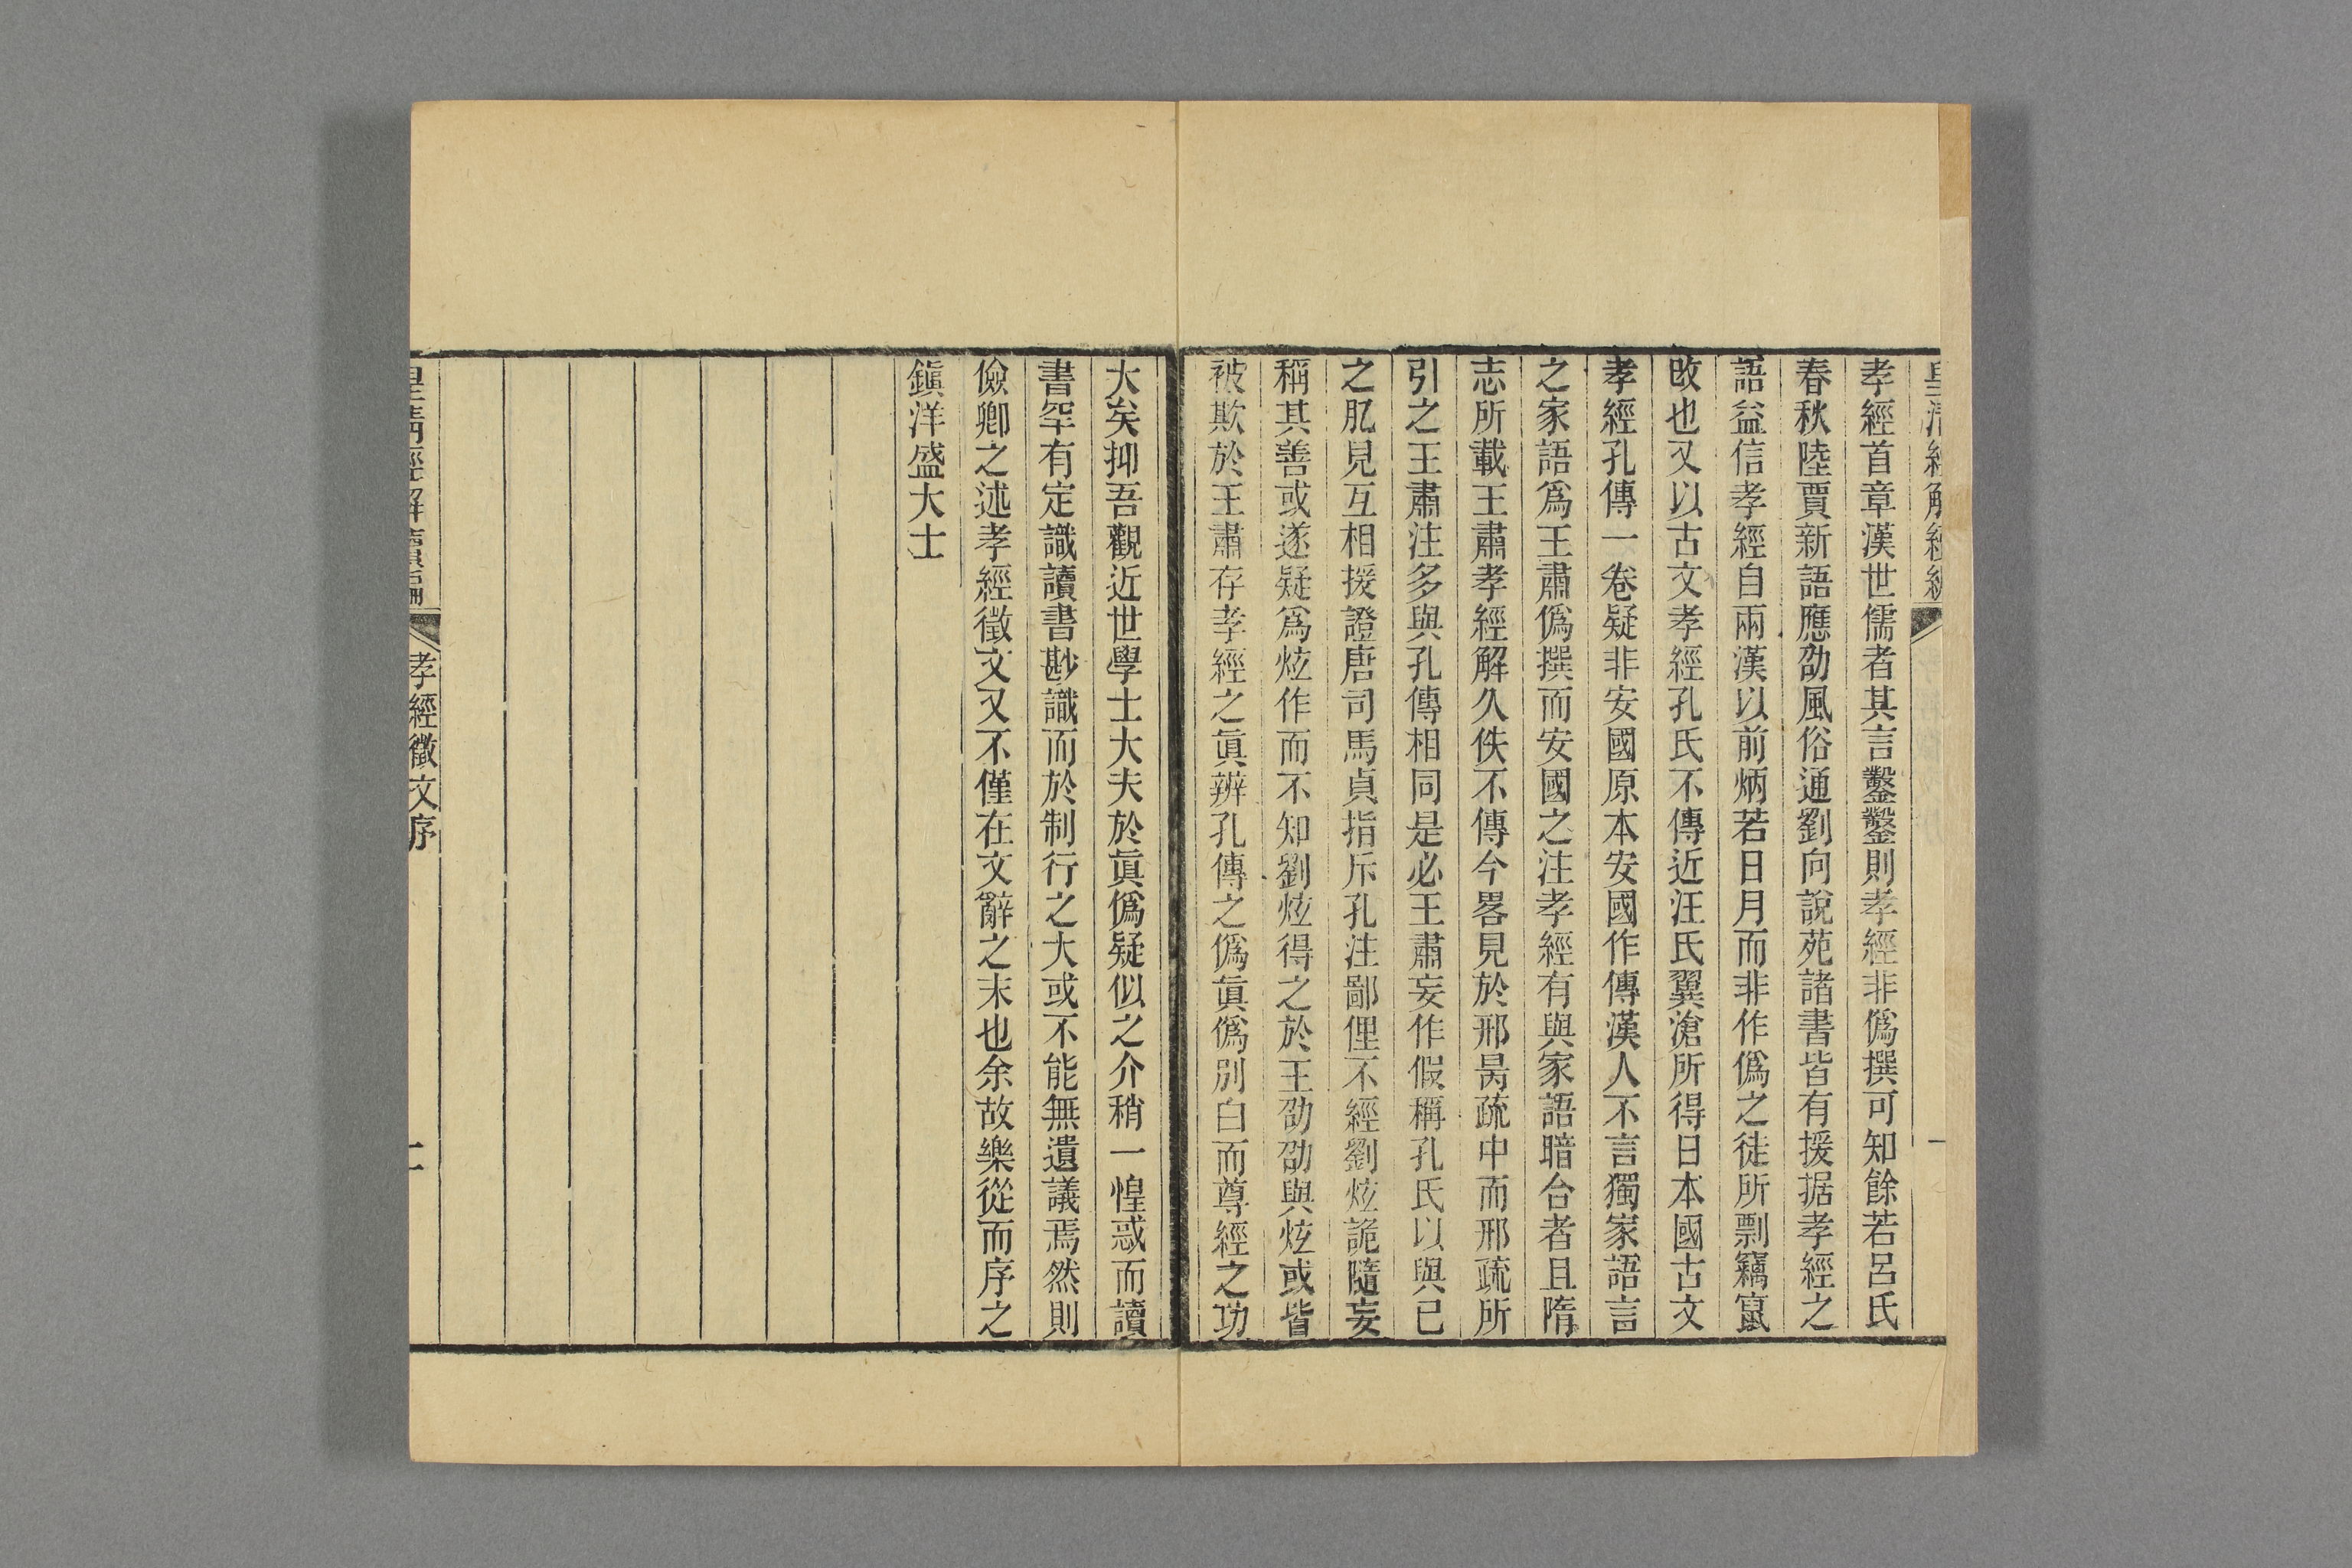 孝經首章漢世儒者其言鑿鑿則孝經非僞撰可知餘若呂氏
春秋陸賈新語應劭風俗通劉向說苑諸書皆有援据孝經之
語益信孝經自兩漢以前炳若日月而非作僞之徒所剽竊竄
改也又以古文孝經孔氏不傳近汪氏翼滄所得日本國古文
孝經孔傳一卷疑非安國原本安國作傳漢人不言獨家語言
之家語爲王肅僞撰而安國之注孝經有與家語暗合者且隋
志所載王肅孝經解久佚不傳今畧見於邢昺疏中而邢疏所
引之王肅注多與孔傳相同是必王肅妄作假稱孔氏以與己
之肊見互相援證唐司馬貞指斥孔注鄙俚不經劉炫詭隨妄
稱其善或遂疑爲炫作而不知劉炫得之於王劭劭與炫或皆
被欺於王肅存孝經之眞辨孔傳之僞眞僞別白而尊經之功
大矣抑吾觀近世學士大夫於眞僞疑似之介稍一惶惑而讀
書罕有定識讀書尠識而於制行之大或不能無遺議焉然則
儉卿之述孝經徵文又不僅在文辭之末也余故樂從而序之
鎭洋盛大士
皇清經解續編
孝經徵文序